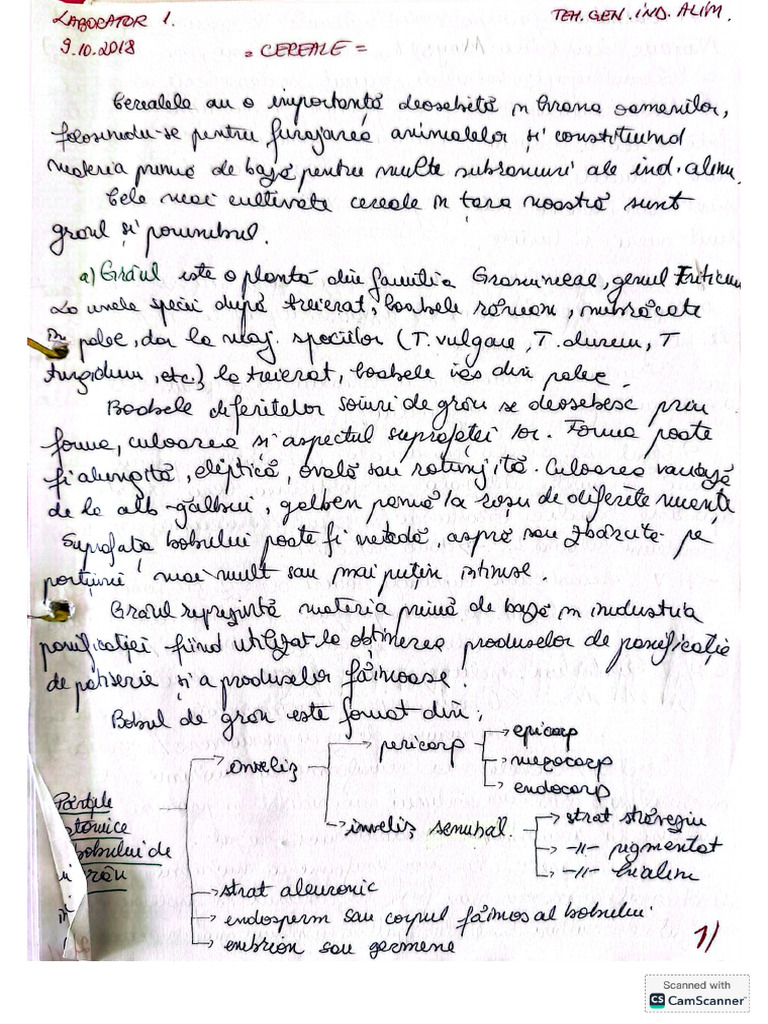 LABORATOR 1. TEH. GEN. IND. ALIM.
9.10.2018 = CEREALE =
Cerealele au o importanță deosebită în hrana oamenilor,
folosindu-se pentru furajarea animalelor și constituind
materia primă de bază pentru multe subramuri ale ind. alim.
Cele mai cultivate cereale în țara noastră sunt
grâul și porumbul.
a) Grâul este o plantă din familia Gramineae, genul Triticum
La unele specii după treierat, boabele rămân, îmbrăcate
în palee, dar la maj. speciilor (T. vulgare, T. durum, T
turgidum, etc.) la treierat, boabele ies din palee.
Boabele diferitelor soiuri de grâu se deosebesc prin
forma, culoarea și aspectul suprafeței lor. Forma poate
fi alungită, eliptică, ovală sau rotunjită. Culoarea variază
de la alb-gălbui, galben până la roșu de diferite nuanțe
Suprafața bobului poate fi netedă, aspră sau zbârcită pe
porțiuni mai mult sau mai puțin întinse.
Grâul reprezintă materia primă de bază în industria
panificației, fiind utilizat la obținerea produselor de panificație
de patiserie și a produselor făinoase.
Bobul de grâu este format din:
înveliș → pericarp → epicarp
mezocarp
endocarp
Părțile
atomice
bobului de
grâu
înveliș seminal. → strat străveziu
-11- pigmentat
-11- hialin
strat aleuronic
endosperm sau corpul făinos al bobului
embrion sau germene
1/
Scanned with
CS CamScanner